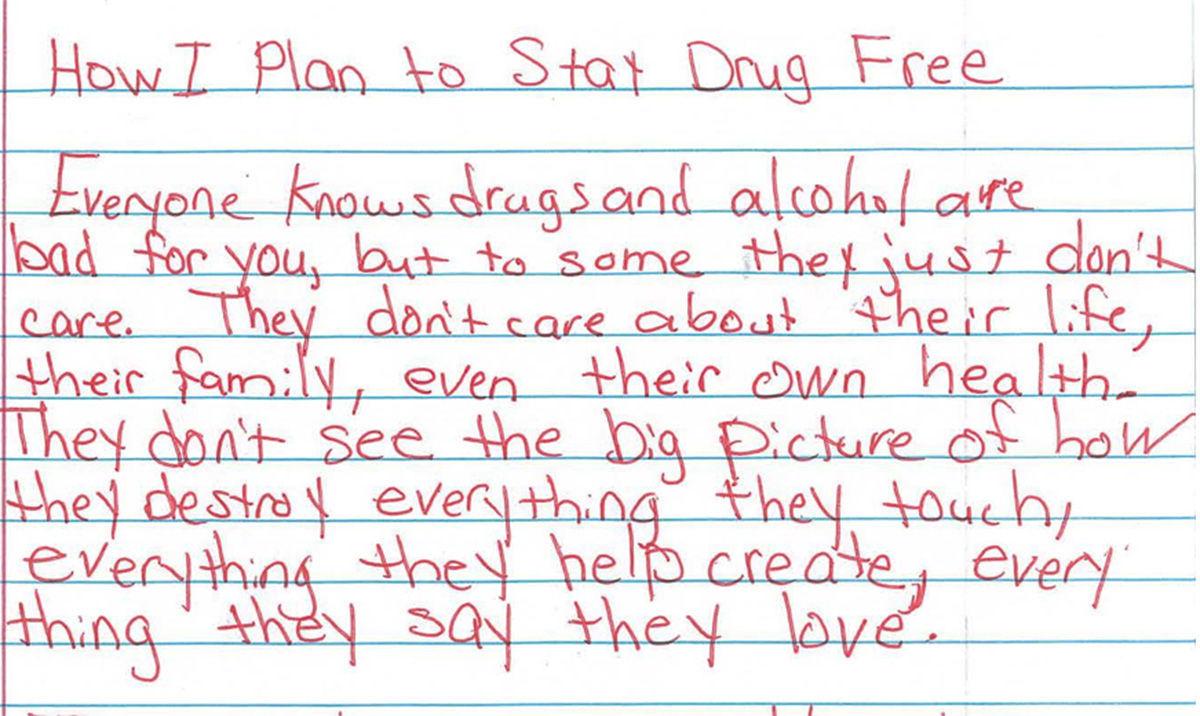 How I Plan to Stay Drug Free
Everyone knows drugs and alcohol are
bad for you, but to some they just don't
care. They don't care about their life,
their family, even their own health.
They don't see the big picture of how
they destroy everything they touch,
everything they help create, every
thing they say they love.